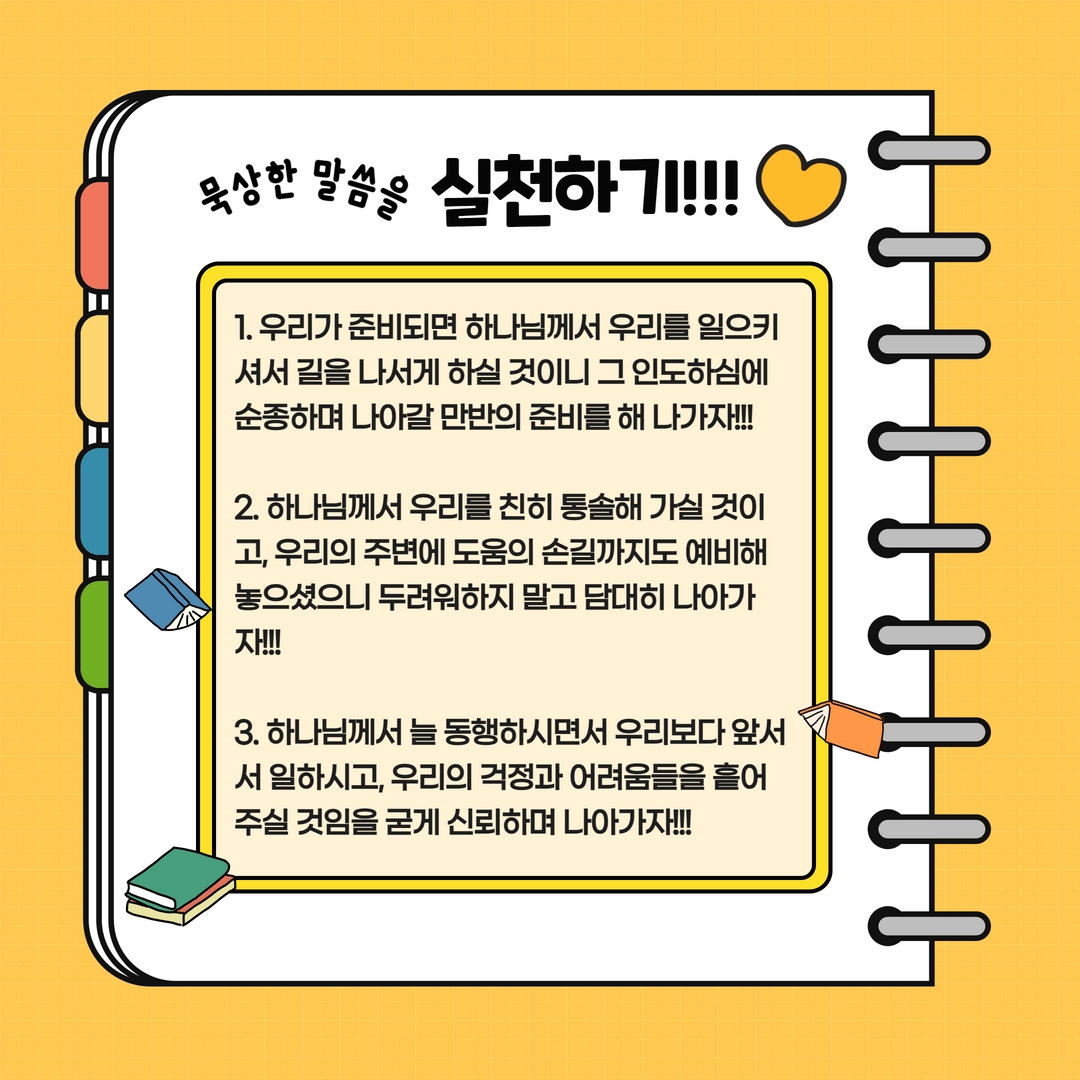 묵상한 말씀을 실천하기!!!
1. 우리가 준비되면 하나님께서 우리를 일으키
셔서 길을 나서게 하실 것이니 그 인도하심에
순종하며 나아갈 만반의 준비를 해 나가자!!!
2. 하나님께서 우리를 친히 통솔해 가실 것이
고, 우리의 주변에 도움의 손길까지도 예비해
놓으셨으니 두려워하지 말고 담대히 나아가
자!!!
3. 하나님께서 늘 동행하시면서 우리보다 앞서
서 일하시고, 우리의 걱정과 어려움들을 흩어
주실 것임을 굳게 신뢰하며 나아가자!!!